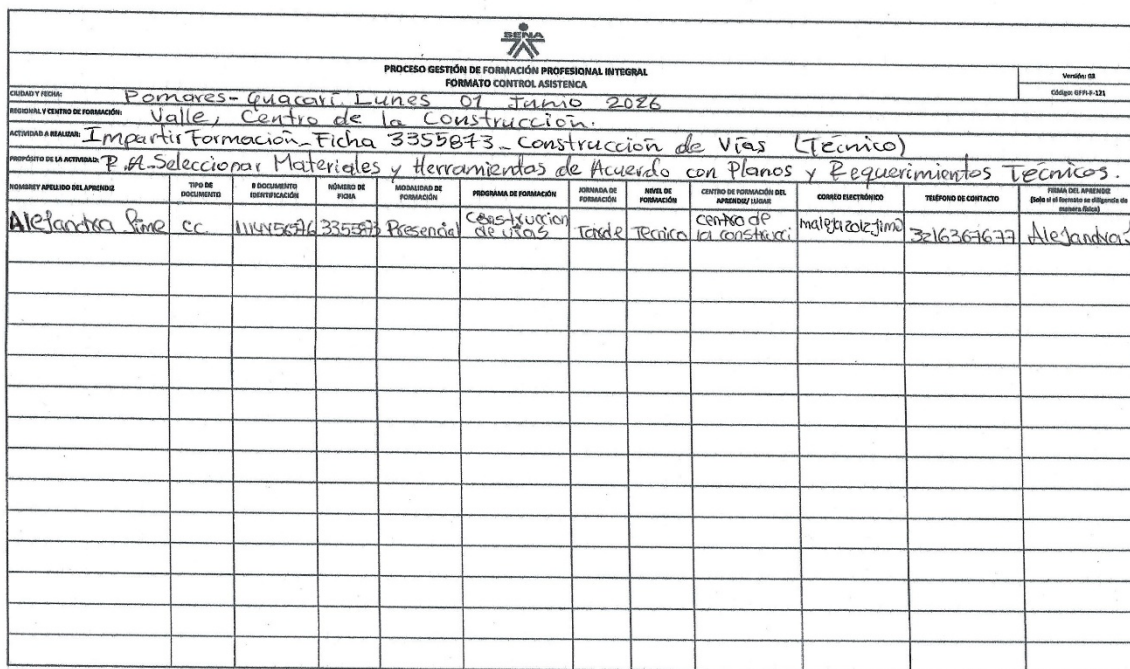 SENA
PROCESO GESTIÓN DE FORMACIÓN PROFESIONAL INTEGRAL
FORMATO CONTROL ASISTENCA
Versión: 03
Código: GFPI-F-121
CIUDAD Y FECHA: Pomares - Guacarí. Lunes 01 Junio 2026
REGIONAL Y CENTRO DE FORMACIÓN: Valle, Centro de la Construcción.
ACTIVIDAD A REALIZAR: Impartir Formación - Ficha 3355873 - Construcción de Vías (Técnico)
PROPÓSITO DE LA ACTIVIDAD: R.A. Seleccionar Materiales y Herramientas de Acuerdo con Planos y Requerimientos Técnicos.
NOMBRE Y APELLIDO DEL APRENDIZ TIPO DE DOCUMENTO # DOCUMENTO IDENTIFICACIÓN NÚMERO DE FICHA MODALIDAD DE FORMACIÓN PROGRAMA DE FORMACIÓN JORNADA DE FORMACIÓN NIVEL DE FORMACIÓN CENTRO DE FORMACIÓN DEL APRENDIZ/ LUGAR CORREO ELECTRÓNICO TELÉFONO DE CONTACTO FIRMA DEL APRENDIZ (Solo si el formato se diligencia de manera física)
Alejandra cc. 3355873 Presencial Construccion de vias Tarde Tecnico centro de la construcci Alejandra